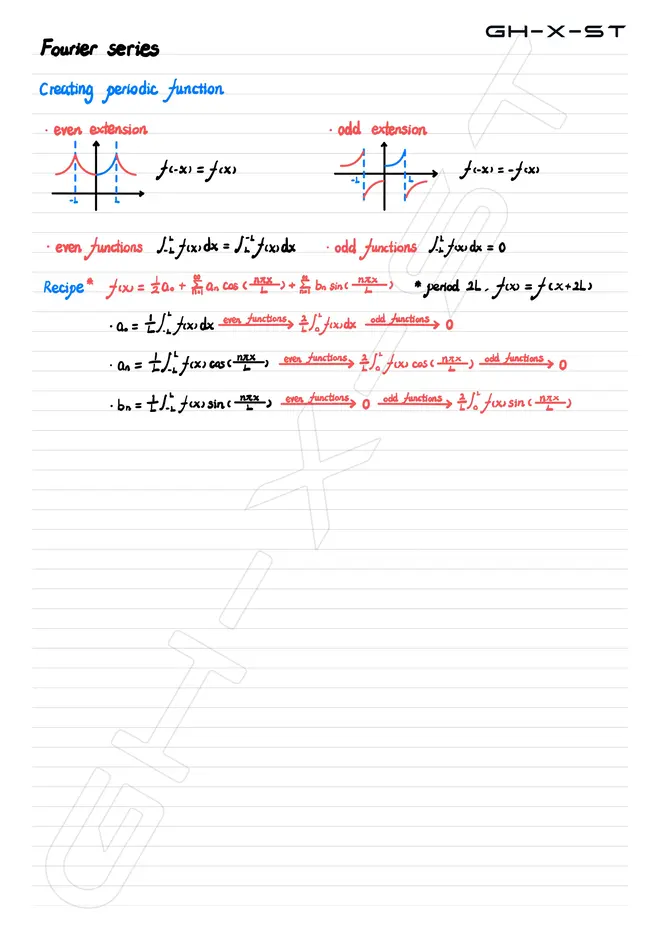 GH-X-ST
Fourier series
Creating periodic function
· even extension · odd extension
f(-x) = f(x) f(-x) = -f(x)
-L L -L L
· even functions ∫_{-L}^{L} f(x) dx = ∫_{L}^{-L} f(x) dx · odd functions ∫_{-L}^{L} f(x) dx = 0
Recipe* f(x) = 1/2 a₀ + ∑_{n=1}^{∞} aₙ cos(nπx/L) + ∑_{n=1}^{∞} bₙ sin(nπx/L) * period 2L, f(x) = f(x+2L)
· a₀ = 1/L ∫_{-L}^{L} f(x) dx even functions → 2/L ∫_{0}^{L} f(x) dx odd functions → 0
· aₙ = 1/L ∫_{-L}^{L} f(x) cos(nπx/L) even functions → 2/L ∫_{0}^{L} f(x) cos(nπx/L) odd functions → 0
· bₙ = 1/L ∫_{-L}^{L} f(x) sin(nπx/L) even functions → 0 odd functions → 2/L ∫_{0}^{L} f(x) sin(nπx/L)
GH-X-ST